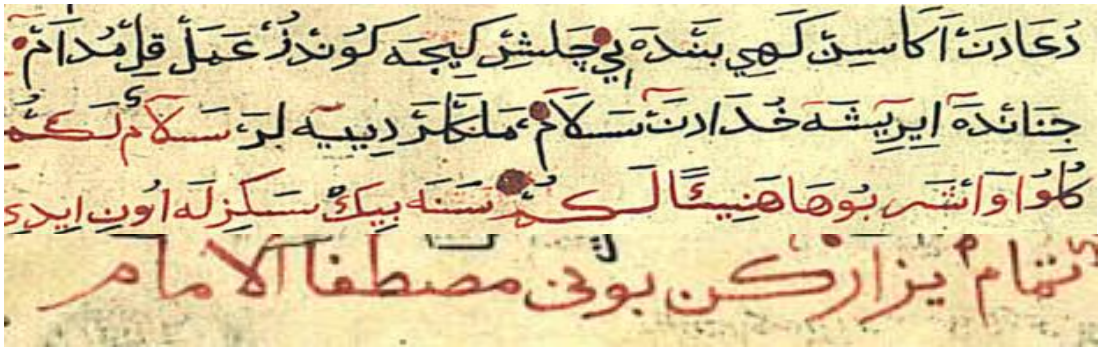 دُعَادَنْ اَكَاسِنْ كَهِي بَنْدَهْ اِي چَلِشِرْ كِيجَه كُونْدُزْ عَمَلْ قِلْ مُدَامْ
جِنَانْدَهْ اِيرِيشَه خُدَادَنْ سَلَامْ مَلَكْلَرْ دِييَه لَرْ سَلَامٌ لَكُمْ
كُلُوا وَاشْرَبُوهَا هَنِيئًا لَكُمْ سَنَه بِيكْ سَكِزْلَه اُونِ ايدِي
تمام يزاركن بونى مصطفا الامام